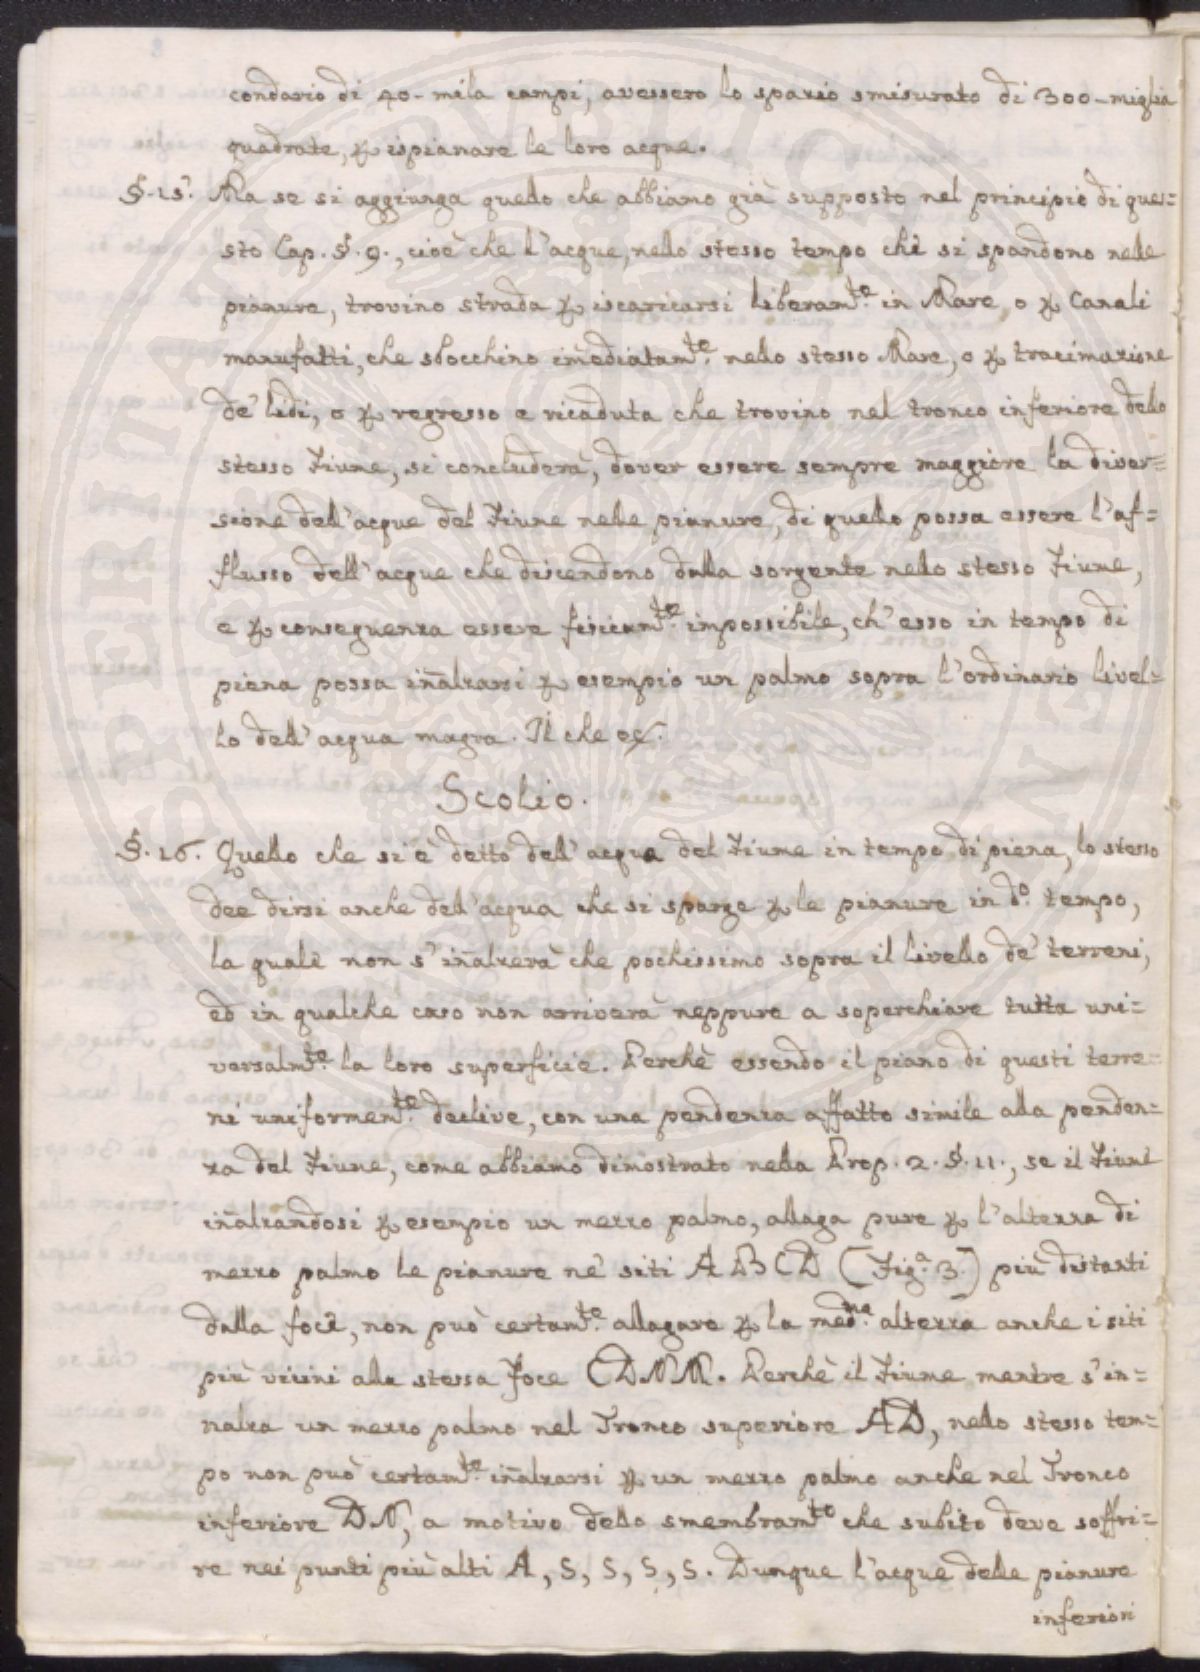 condario di 40-mila campi, avessero lo spazio smisurato di 300-miglia
quadrate, ꝑ ispianare le loro acque.
§. 15. Ma se si aggiunga quello che abbiamo già supposto nel principio di que=
sto Cap. §. 9., cioè che l'acque, nello stesso tempo che si spandono nelle
pianure, trovino strada ꝑ iscaricarsi liberamte. in Mare, o ꝑ Canali
manufatti, che sbocchino im̄ediatamte. nello stesso Mare, o ꝑ tracimazione
de' lidi, o ꝑ regresso e ricaduta che trovino nel tronco inferiore dello
stesso Fiume, si concluderà, dover essere sempre maggiore la diver=
sione dell'acque del Fiume nelle pianure, di quello possa essere l'af=
flusso dell'acque che discendono dalla sorgente nello stesso Fiume,
e ꝑ conseguenza essere fisicamte. impossibile, ch'esso in tempo di
piena possa in̄alzarsi ꝑ esempio un palmo sopra l'ordinario livel=
lo dell'acqua magra. Il che ec.
Scolio.
§. 16. Quello che si è detto dell'acqua del Fiume in tempo di piena, lo stesso
dee dirsi anche dell'acqua che si sparge ꝑ le pianure in do. tempo,
la quale non s'in̄alzerà che pochissimo sopra il livello de' terreni,
ed in qualche caso non arriverà neppure a soperchiare tutta uni=
versalmte. la loro superficie. Perchè essendo il piano di questi terre=
ni uniformente. declive, con una pendenza affatto simile alla penden=
za del Fiume, come abbiamo dimostrato nella Prop. 2. §. 11., se il Fiume
in̄alzandosi ꝑ esempio un mezzo palmo, allaga pure ꝑ l'altezza di
mezzo palmo le pianure ne' siti A B C D (Figa. 3.) più distanti
dalla foce, non può certamte. allagare ꝑ la medma. altezza anche i siti
più vicini alla stessa Foce CDNM. Perchè il Fiume mentre s'in=
nalza un mezzo palmo nel Tronco superiore AD, nello stesso tem=
po non può certamte. in̄alzarsi ꝑ un mezzo palmo anche nel Tronco
inferiore DN, a motivo dello smembramto che subito deve soffri=
re nei punti più alti A, S, S, S, S. Dunque l'acque delle pianure
inferiori